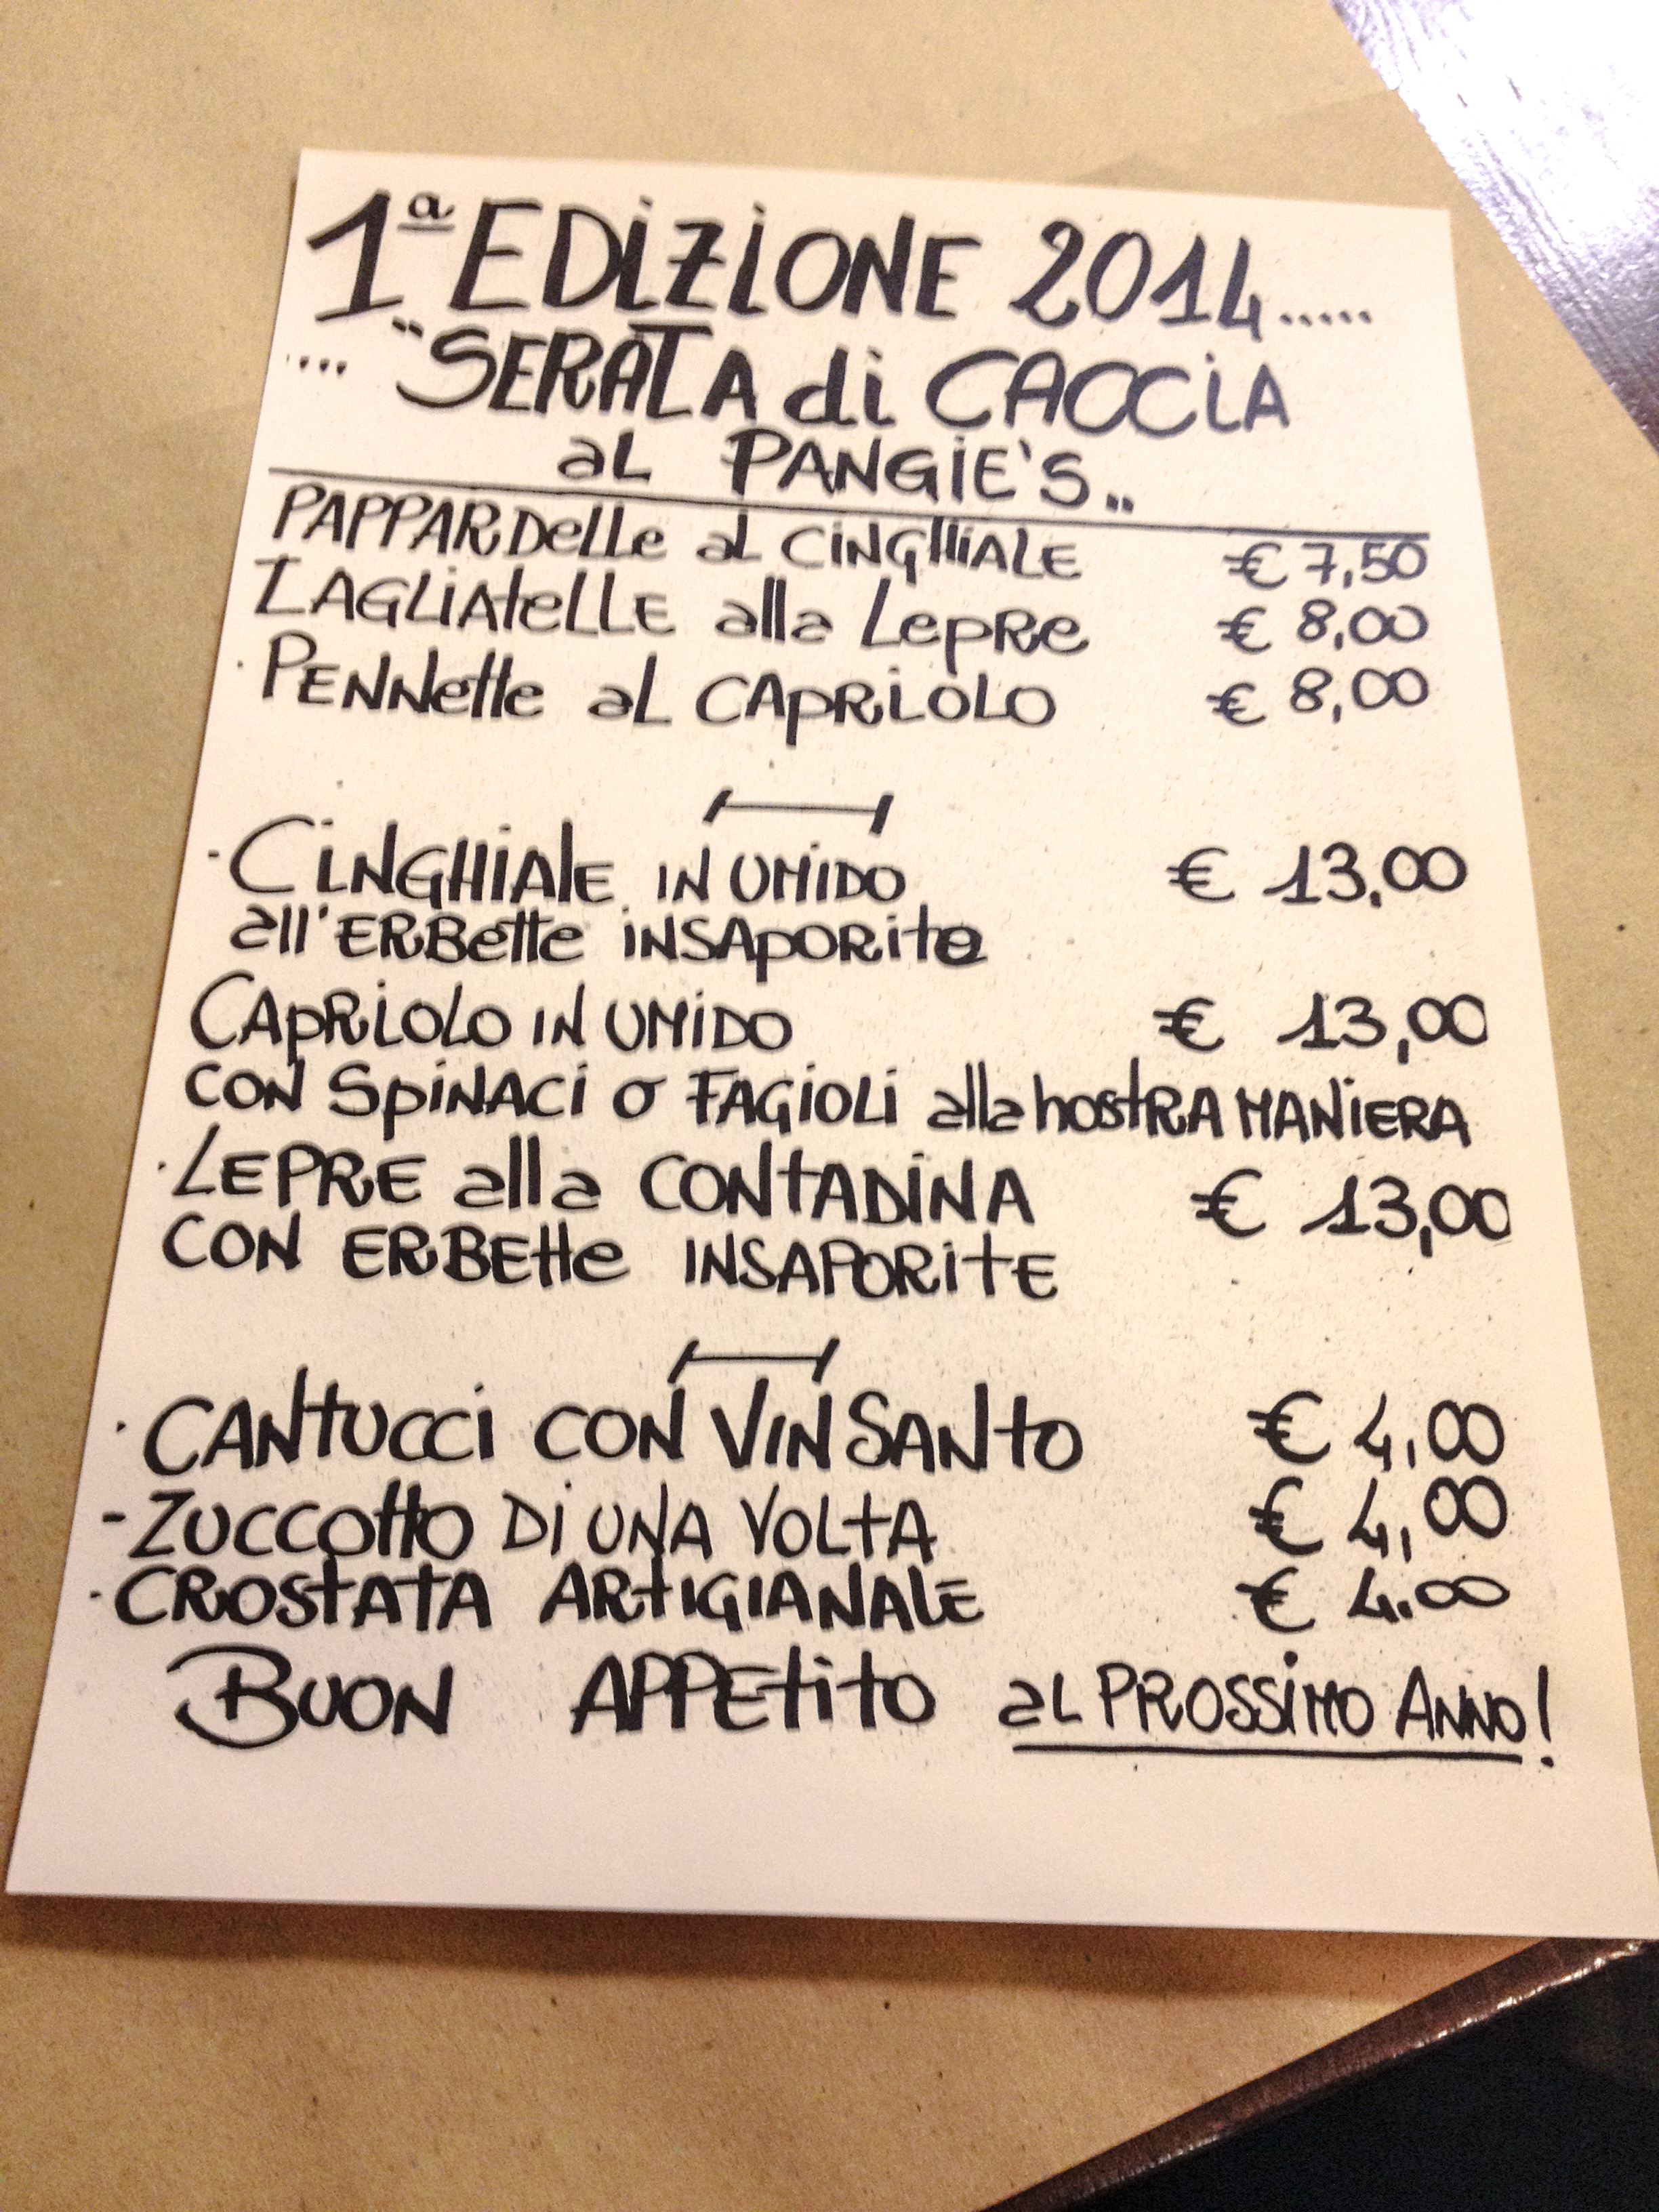 1ª EDIZIONE 2014.....
.... "SERATA di CACCIA
aL PANGIE'S..
PAPPARDelle aL CINGHIALE € 7,50
TAGLIAtelLE alla LepRe € 8,00
· PENNette aL CApRIOLO € 8,00
- CINGHIAlE IN UMIDO € 13,00
all'ERBette INSApORite
CApRIOLO IN UMIDO € 13,00
CON SpINACI o FAGIOLI alla nostRA MANIERA
· LEPRE alla CONTADINA € 13,00
CON ERBEtte INSAPORItE
· CANtUCCI CON VIN SANtO € 4,00
- ZUCCOttO DI UNA VOLtA € 4,00
· CROStATA ARtIGIANALE € 4.00
BUON APPEtitO aL PROSSIMO ANNO!